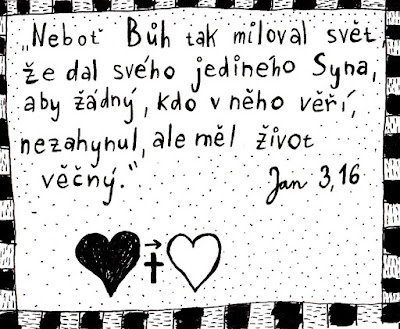 „Neboť Bůh tak miloval svět,
že dal svého jediného Syna,
aby žádný, kdo v něho věří,
nezahynul, ale měl život
věčný."
Jan 3,16